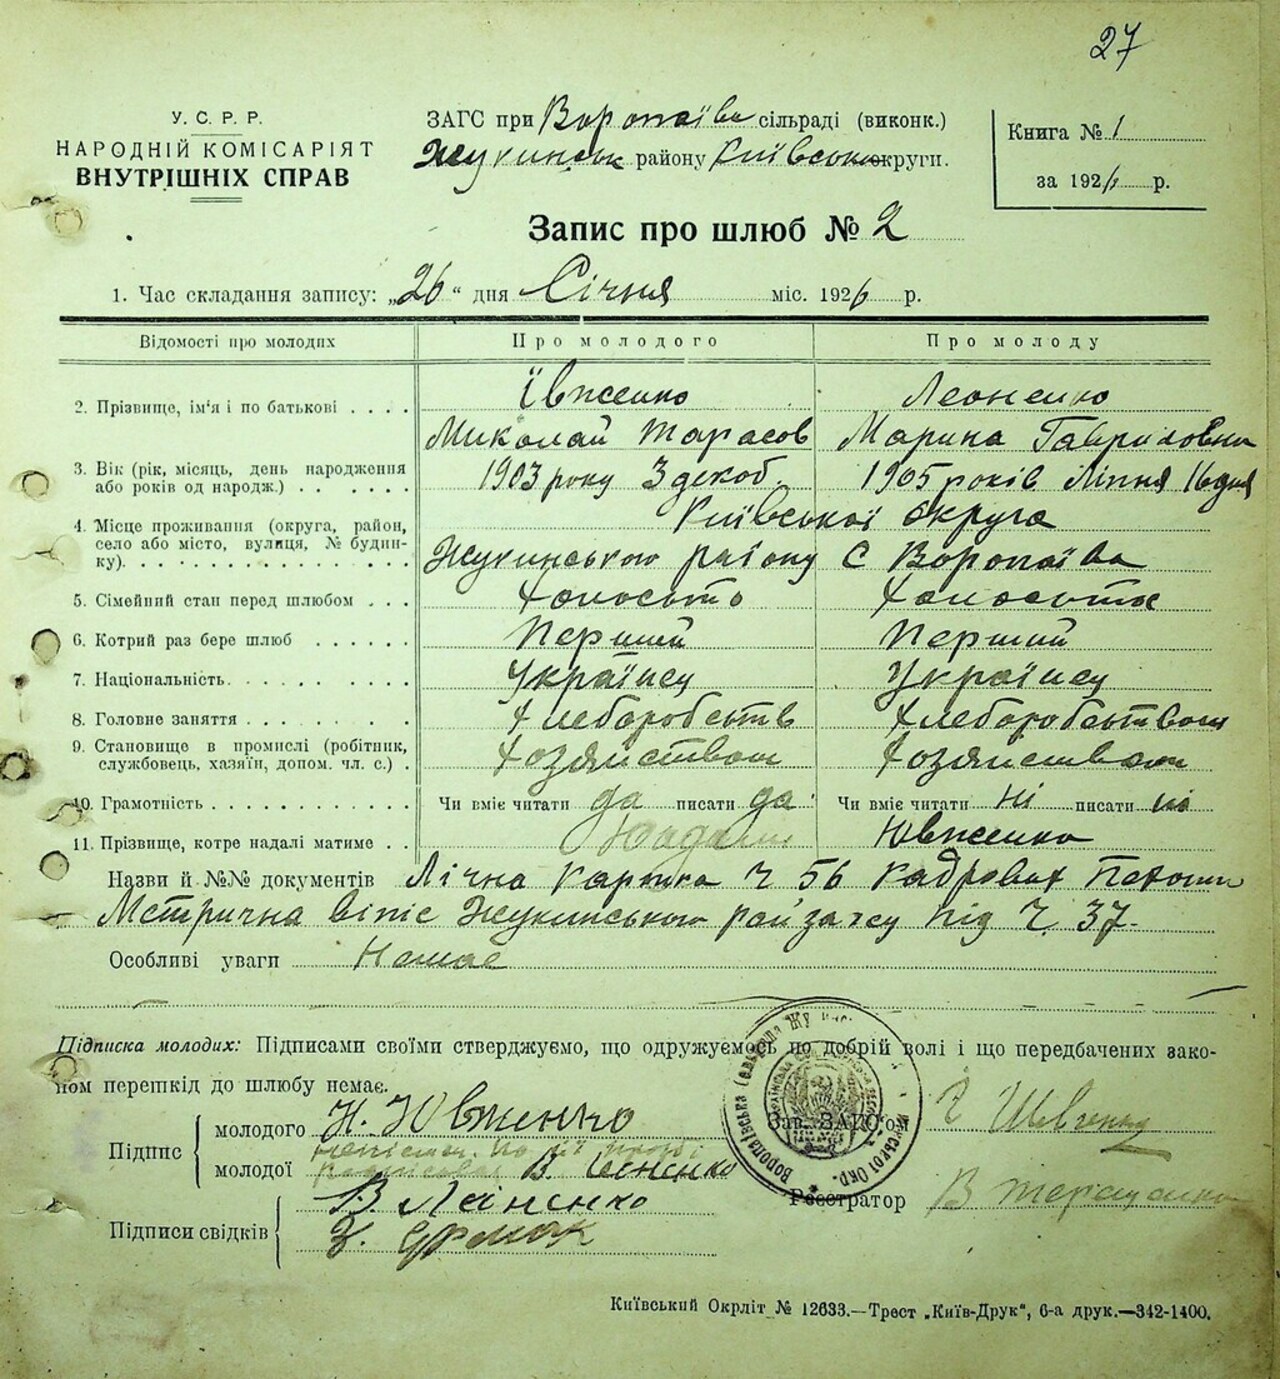 27
У. С. Р. Р.
НАРОДНІЙ КОМІСАРІЯТ
ВНУТРІШНІХ СПРАВ
ЗАГС при Воропаїве сільраді (виконк.)
Жукинськ району Київської округи.
Книга № 1
за 1926 р.
Запис про шлюб № 2
1. Час складання запису: „26" дня Січня міс. 1926 р.
Відомості про молодих
Про молодого
Про молоду
2. Прізвище, ім'я і по батькові . . . .
Ївженко
Леоненко
Миколай Тарасов
Марина Гавриловна
3. Вік (рік, місяць, день народження
або років од народж.) . . . . . .
1903 року 3 декоб.
1905 років Ліпня 16 дня
4. Місце проживання (округа, район,
село або місто, вулиця, № будин-
ку). . . . . . . . . . . . . . . . .
Київської Округа
Жукинського району С Воропаїва
5. Сімейний стан перед шлюбом . . .
Холосьто
Холосьтя
6. Котрий раз бере шлюб . . . . . .
Перший
Перший
7. Національність. . . . . . . . . . .
Українец
Українец
8. Головне заняття . . . . . . . . .
Хлеборобсьтв
Хлеборобсьтвом
9. Становище в промислі (робітник,
службовець, хазяїн, допом. чл. с.) .
Хозяиством
Хозяиством
10. Грамотність . . . . . . . . . . . .
Чи вміє читати да писати да
Чи вміє читати ні писати ні
11. Прізвище, котре надалі матиме . .
Ювженко
Назви й №№ документів Лічна картка Ч 56 Кадрових
Метрична віпіс Жукинського райзагсу під Ч. 37-
Особливі уваги Немає
Підписка молодих: Підписами своїми стверджуємо, що одружуємось по добрій волі і що передбачених зако-
ном перешкід до шлюбу немає.
Підпис
молодого Н. Ювженко
молодої неписмен. по її прозбі
В. Леоненко
Підписи свідків
В. Леіненко
Єрмак
Зав. ЗАГС'ом Шевченко
Реєстратор В Терещенко
Київський Окрліт № 12633.—Трест „Київ-Друк", 6-а друк.—342-1400.